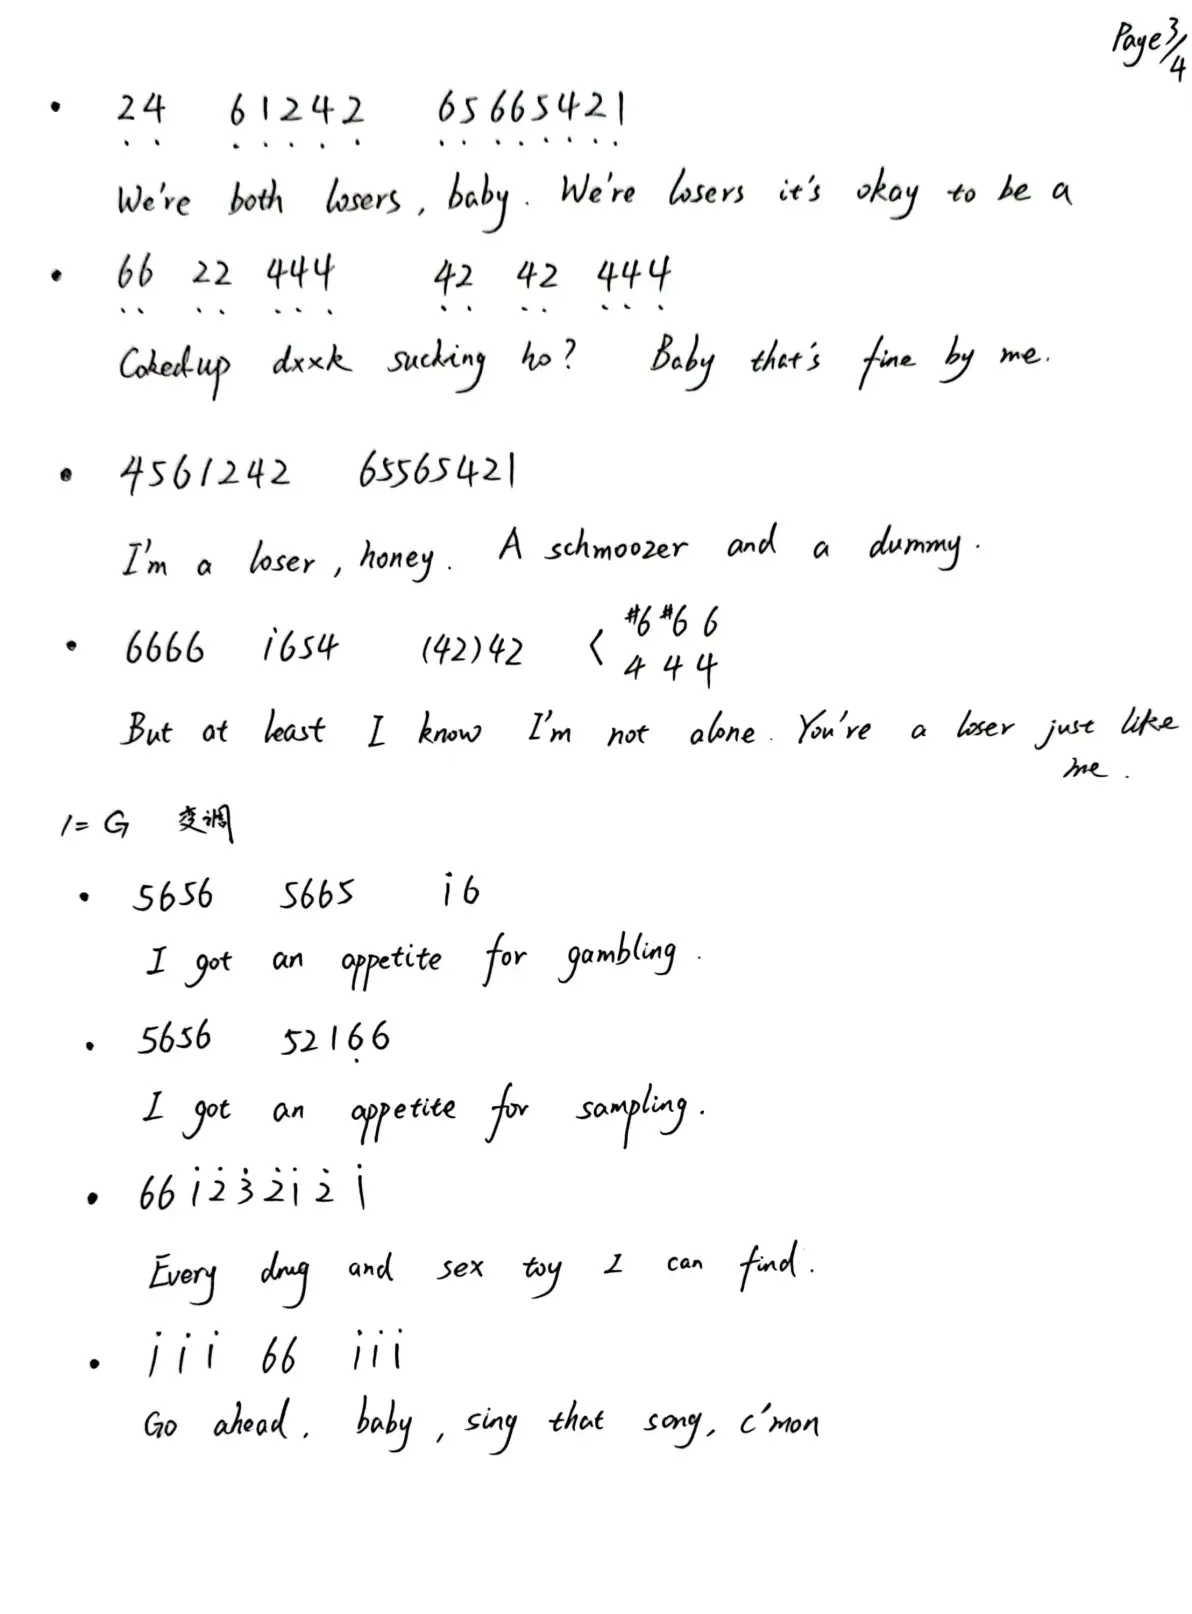 Page 3/4
• 24 61242 65665421
We're both losers, baby. We're losers it's okay to be a
• 66 22 444 42 42 444
Coked-up dxxk sucking ho? Baby that's fine by me.
• 4561242 65565421
I'm a loser, honey. A schmoozer and a dummy.
#6 #6 6
• 6666 i654 (42)42 <
4 4 4
But at least I know I'm not alone. You're a loser just like
me.
1=G 变调
• 5656 5665 i6
I got an appetite for gambling.
• 5656 5216̣6
I got an appetite for sampling.
• 66i2̇3̇2̇i2̇i
Every drug and sex toy I can find.
• iii 66 iii
Go ahead, baby, sing that song, c'mon